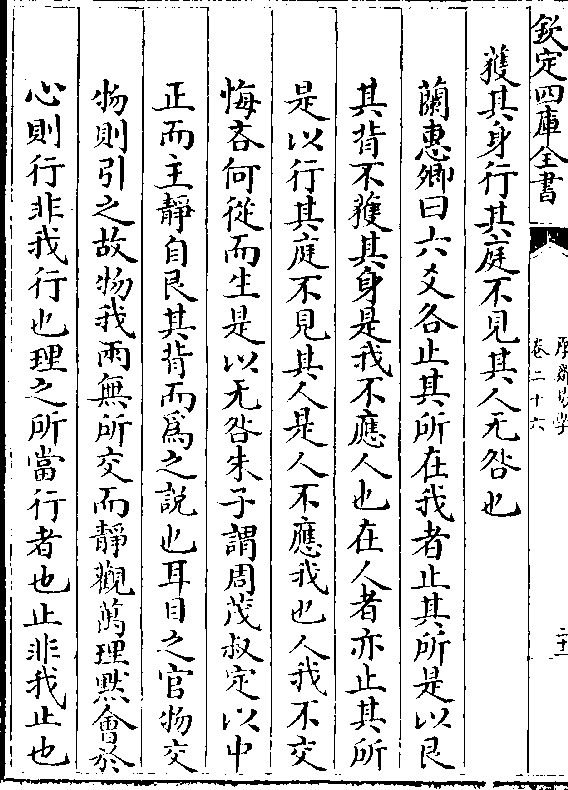 欽定四庫全書
獲其身行其庭不見其人无咎也
蘭惠卿曰六爻各止其所在我者止其所是以艮
其背不獲其身是我不應人也在人者亦止其所
是以行其庭不見其人是人不應我也人我不交
悔吝何從而生是以无咎朱子謂周茂叔定以中
正而主靜自艮其背而爲之說也耳目之官物交
物則引之故物我兩無所交而靜觀萬理黙會於
心則行非我行也理之所當行者也止非我止也
厚齋易學
卷二十六